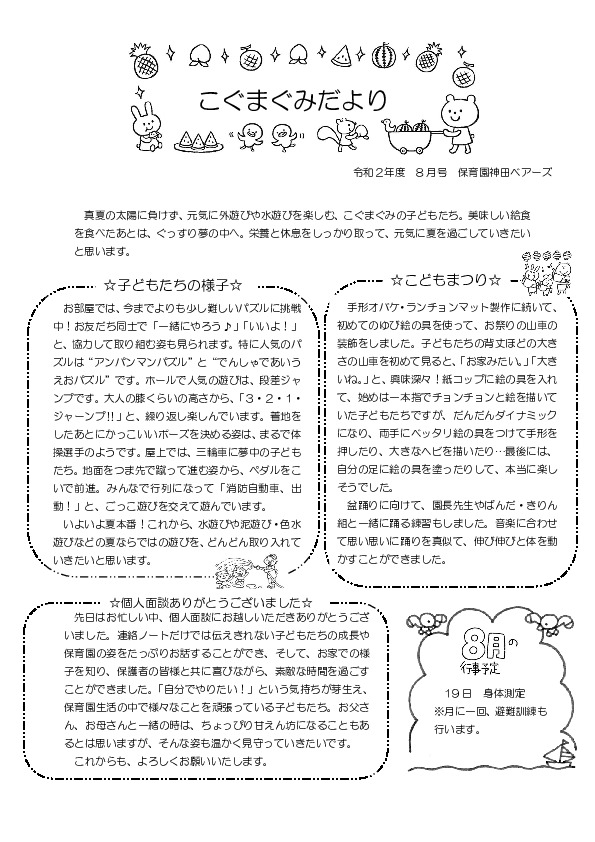 こぐまぐみだより
令和２年度　８月号　保育園神田ベアーズ
真夏の太陽に負けず、元気に外遊びや水遊びを楽しむ、こぐまぐみの子どもたち。美味しい給食
を食べたあとは、ぐっすり夢の中へ。栄養と休息をしっかり取って、元気に夏を過ごしていきたい
と思います。
☆子どもたちの様子☆
お部屋では、今までよりも少し難しいパズルに挑戦
中！お友だち同士で「一緒にやろう♪」「いいよ！」
と、協力して取り組む姿も見られます。特に人気のパ
ズルは“アンパンマンパズル”と“でんしゃであいう
えおパズル”です。ホールで人気の遊びは、段差ジャ
ンプです。大人の膝くらいの高さから、「３・２・１・
ジャーンプ!!」と、繰り返し楽しんでいます。着地を
したあとにかっこいいポーズを決める姿は、まるで体
操選手のようです。屋上では、三輪車に夢中の子ども
たち。地面をつま先で蹴って進む姿から、ペダルをこ
いで前進。みんなで行列になって「消防自動車、出
動！」と、ごっこ遊びを交えて遊んでいます。
いよいよ夏本番！これから、水遊びや泥遊び・色水
遊びなどの夏ならではの遊びを、どんどん取り入れて
いきたいと思います。
☆こどもまつり☆
手形オバケ・ランチョンマット製作に続いて、
初めてのゆび絵の具を使って、お祭りの山車の
装飾をしました。子どもたちの背丈ほどの大き
さの山車を初めて見ると、「お家みたい。」「大き
いね。」と、興味深々！紙コップに絵の具を入れ
て、始めは一本指でチョンチョンと絵を描いて
いた子どもたちですが、だんだんダイナミック
になり、両手にベッタリ絵の具をつけて手形を
押したり、大きなヘビを描いたり…最後には、
自分の足に絵の具を塗ったりして、本当に楽し
そうでした。
盆踊りに向けて、園長先生やぱんだ・きりん
組と一緒に踊る練習もしました。音楽に合わせ
て思い思いに踊りを真似て、伸び伸びと体を動
かすことができました。
☆個人面談ありがとうございました☆
先日はお忙しい中、個人面談にお越しいただきありがとうござ
いました。連絡ノートだけでは伝えきれない子どもたちの成長や
保育園の姿をたっぷりお話することができ、そして、お家での様
子を知り、保護者の皆様と共に喜びながら、素敵な時間を過ごす
ことができました。「自分でやりたい！」という気持ちが芽生え、
保育園生活の中で様々なことを頑張っている子どもたち。お父さ
ん、お母さんと一緒の時は、ちょっぴり甘えん坊になることもあ
るとは思いますが、そんな姿も温かく見守っていきたいです。
これからも、よろしくお願いいたします。
8月の
行事予定
１９日　身体測定
※月に一回、避難訓練も
行います。